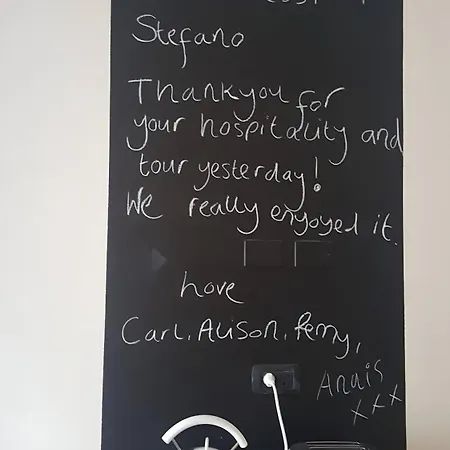 Stefano
Thankyou for
your hospitality and
tour yesterday!
We really enjoyed it.
Love
Carl, Alison,
Anais
xxx